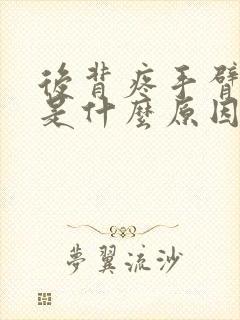 後背疼手臂
是什麼原因
夢翼流沙